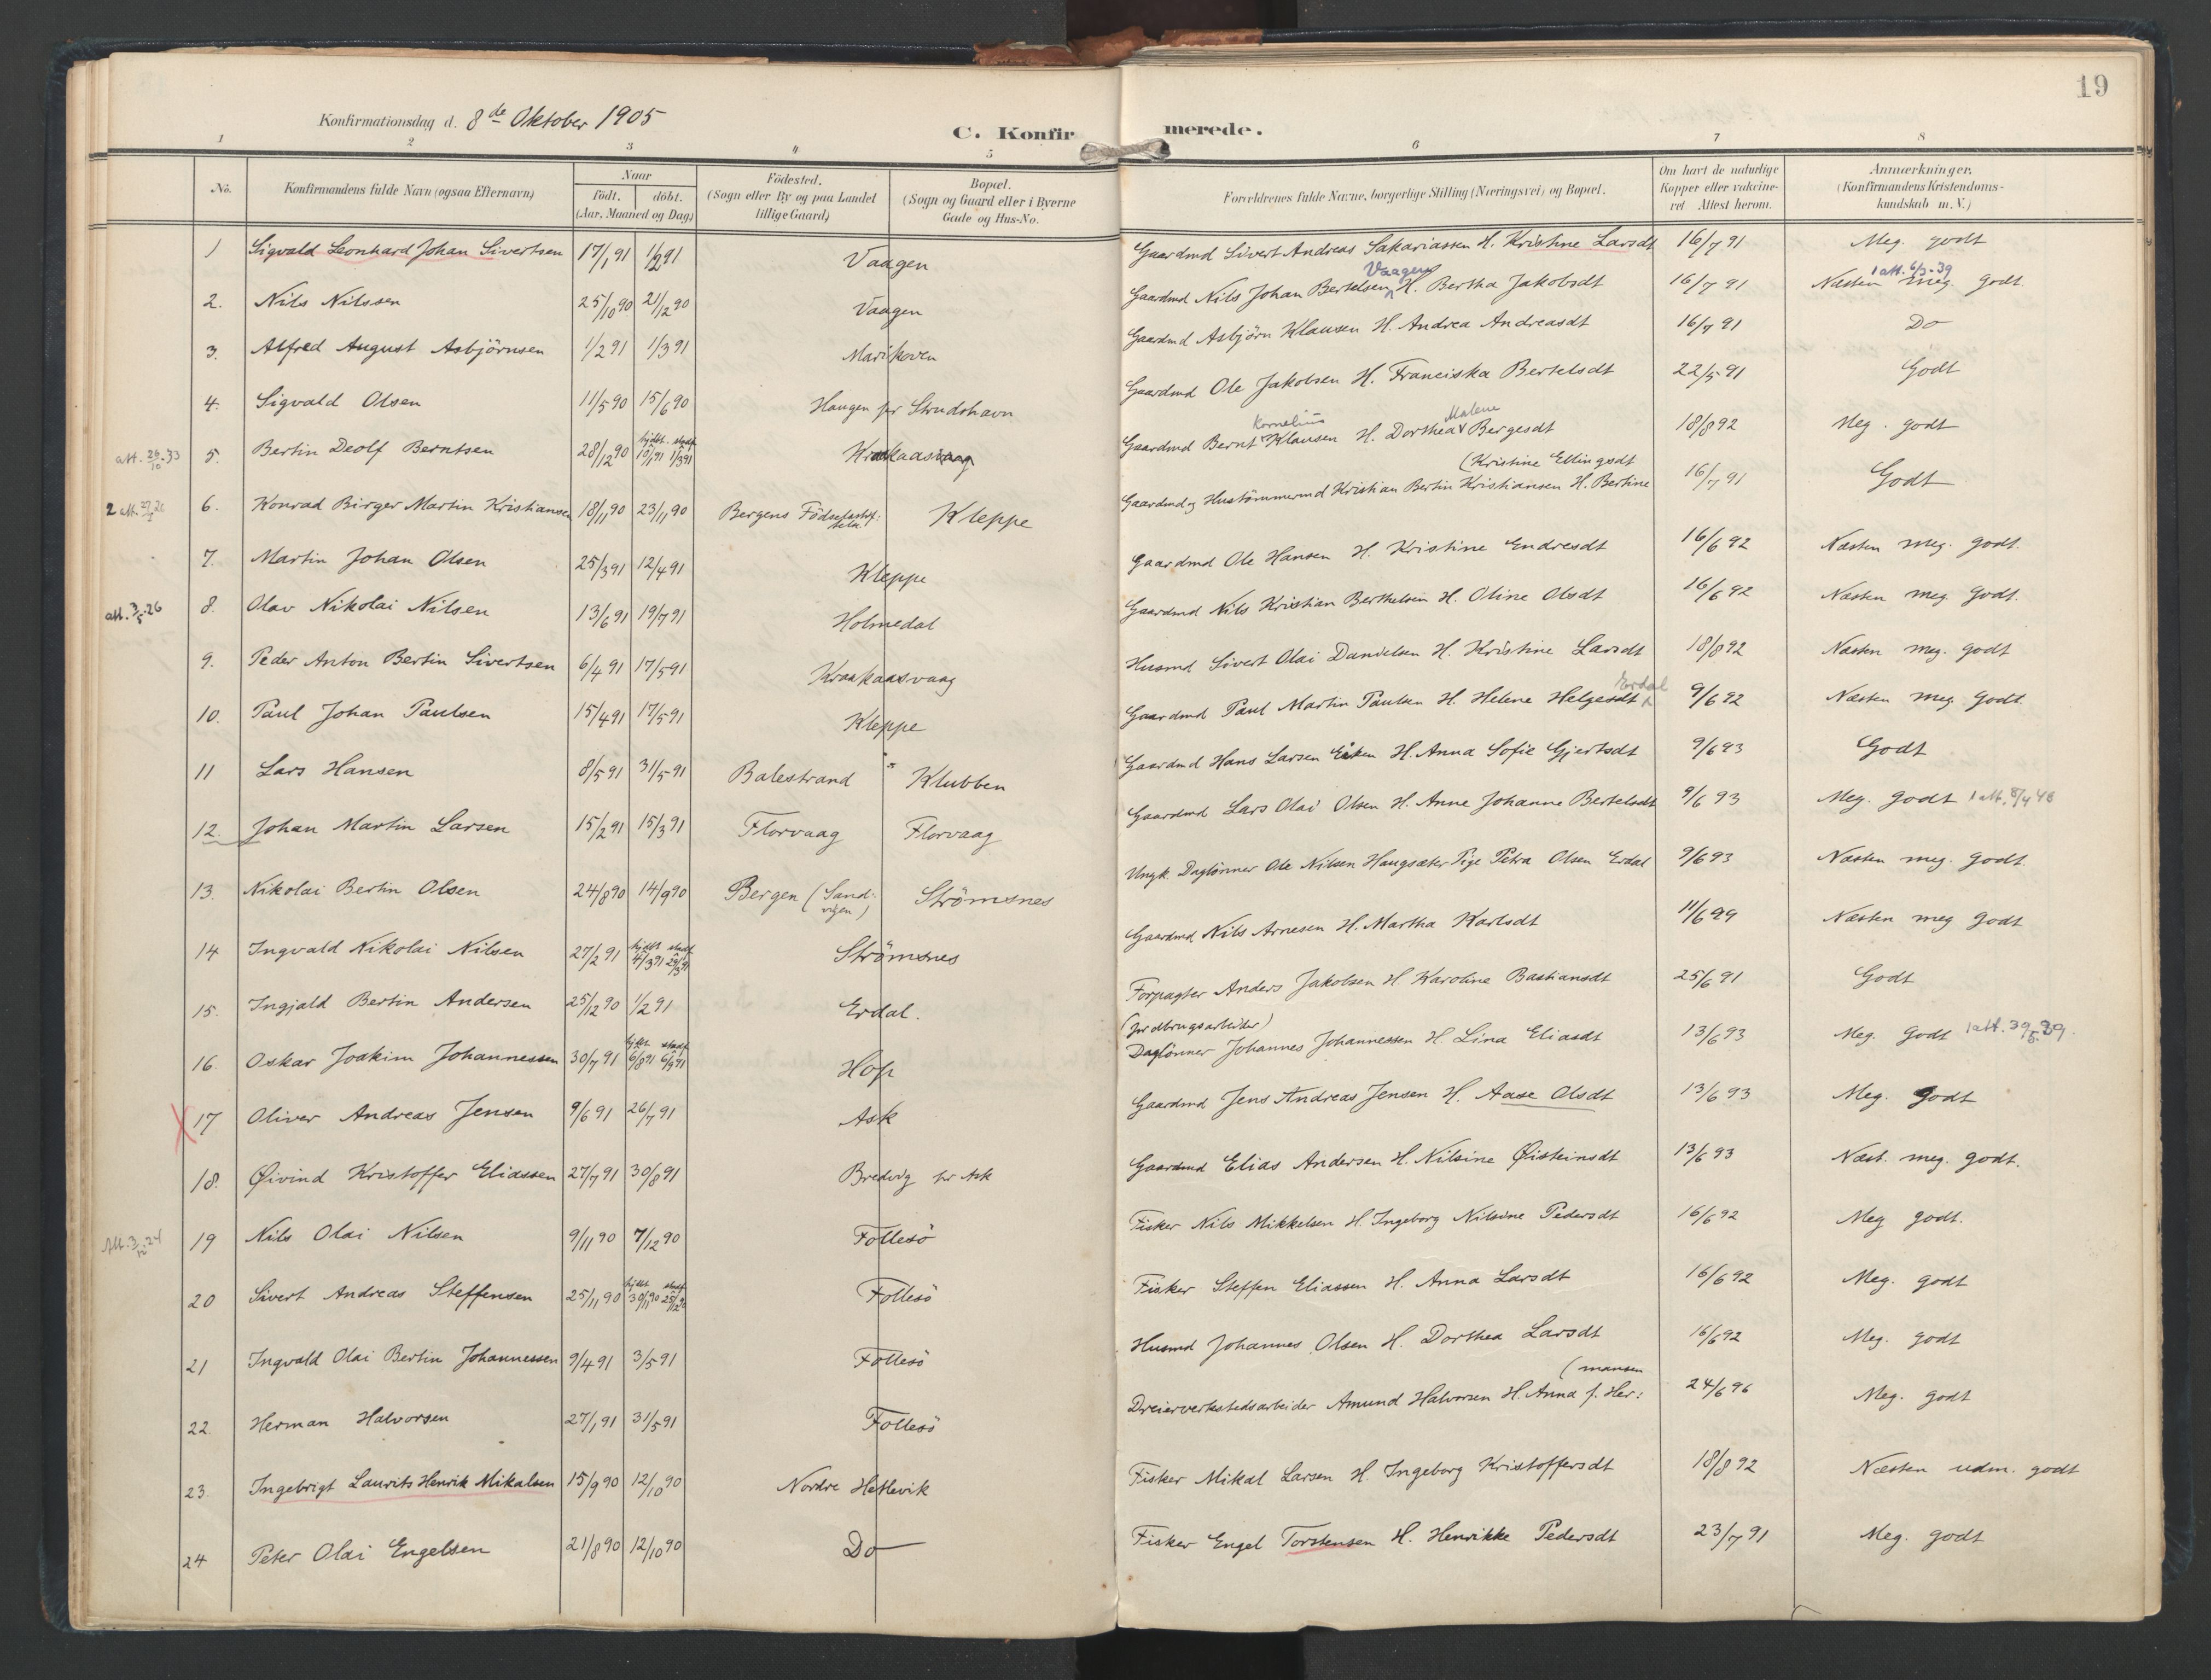 19
Konfirmationsdag d. 8de Oktober 1905
C. Konfirmerede.
1 2 3 4 5 6 7 8
No. Konfirmandens fulde Navn (ogsaa Efternavn) Naar født. døbt. (Aar, Maaned og Dag) Fødested. (Sogn eller By og paa Landet tillige Gaard) Bopæl. (Sogn og Gaard eller i Byerne Gade og Hus-No. Forældrenes fulde Navne, borgerlige Stilling (Næringsvei) og Bopæl. Om havt de naturlige Kopper eller vakcineret. Attest herom. Anmerkninger. (Konfirmandens Kristendomskundskab m. V.)
1 Sigvald Leonhard Johan Sivertsen 17/1 91 1/2 91 Vaagen Gaardmd Sivert Andreas Sakariassen H. Kristine Larsdt 16/7 91 Meg. godt
2. Nils Nilssen 25/10 90 21/12 90 Vaagen Gaardmd Nils Johan Bertelsen Vaagen H. Bertha Jakobsdt 16/7 91 Næsten meg. godt. 1 att. 6/3-39
3. Alfred August Asbjörnsen 1/2 91 1/3 91 Marikoven Gaardmd Asbjörn Klausen H. Andrea Andreasdt 16/7 91 Do
4. Sigvald Olsen 11/5 90 15/6 90 Haugen pr Strudshavn Gaardmd Ole Jakobsen H. Franciska Bertelsdt 22/5 91 Godt
att. 26/10-33 5. Bertin Deolf Berntsen 28/12 90 hjdbt. 10/1 91 stadf. 1/3 91 Krakaasvaag Gaardmd Bernt Kornelius Klausen H. Dorthea Malene Bergesdt 18/8 92 Meg. godt
2 att. 6. Konrad Birger Martin Kristiansen 18/11 90 23/11 90 Bergens Födselsstiftelse Kleppe Gaardmd og Hustömmermd Kristian Bertin Kristiansen H. Bertine (Kristine Ellingsdt 16/7 91 Godt
7. Martin Johan Olsen 25/3 91 12/4 91 Kleppe Gaardmd Ole Hansen H. Kristine Endresdt 16/6 92 Næsten meg. godt.
att. 3/5-26 8. Olav Nikolai Nilsen 13/6 91 19/7 91 Holmedal Gaardmd Nils Kristian Berthelsen H. Oline Olsdt 16/6 92 Næsten meg. godt.
9. Peder Anton Bertin Sivertsen 6/4 91 17/5 91 Kraakaasvaag Husmd Sivert Olai Danielsen H. Kristine Larsdt 18/8 92 Næsten meg. godt
10. Paul Johan Paulsen 15/4 91 17/5 91 Kleppe Gaardmd Paul Martin Paulsen H. Helene Helgesdt Erdal 9/6 92 Næsten meg. godt.
11 Lars Hansen 8/5 91 31/5 91 Balestrand Klubben Gaardmd Hans Larsen Eiken H. Anna Sofie Gjertsdt 9/6 93 Godt
12. Johan Martin Larsen 15/2 91 15/3 91 Florvaag Florvaag Gaardmd Lars Olai Olsen H. Anne Johanne Bertelsdt 9/6 93 Meg. godt 1 att. 8/4 48
13. Nikolai Bertin Olsen 24/8 90 14/9 90 Bergen (Sandvigen) Strömsnes Ungk. Daglönner Ole Nilsen Haugsæter Pige Petra Olsen Erdal 9/6 93 Næsten meg. godt.
14 Ingvald Nikolai Nilsen 27/2 91 hjdbt 4/3 91 stadf 29/3 91 Strömsnes Gaardmd Nils Arnesen H. Martha Karlsdt 11/6 99 Næsten meg godt
15. Ingjald Bertin Andersen 25/12 90 1/2 91 Erdal. Forpagter Anders Jakobsen H. Karoline Bastiansdt 25/6 91 Godt
16. Oskar Joakim Johannessen 30/7 91 hjdbt 6/8 91 stadf 6/9 91 Hop (jordbrugsarbeider) Daglönner Johannes Johannessen H. Lina Eliasdt 13/6 93 Meg. Godt 1 att.
X 17 Oliver Andreas Jensen 9/6 91 26/7 91 Ask Gaardmd Jens Andreas Jensen H. Aase Olsdt 13/6 93 Meg. godt
18. Øivind Kristoffer Eliassen 27/7 91 30/8 91 Bredvig pr Ask Gaardmd Elias Andersen H. Nilsine Øisteinsdt 13/6 93 Næst. meg. godt.
Att. 3/12-24 19 Nils Olai Nilsen 9/11 90 7/12 90 Follesö Fisker Nils Mikkelsen H. Ingeborg Nilsine Pedersdt 16/6 92 Meg godt.
20 Sivert Andreas Steffensen 25/11 90 hjdbt 30/11 90 stadf 25/12 90 Follesö Fisker Steffen Eliassen H. Anna Larsdt 16/6 92 Meg. godt
21 Ingvald Olai Bertin Johannessen 9/4 91 3/5 91 Follesö Husmd Johannes Olsen H. Dorthea Larsdt 16/6 92 Meg. godt
22. Herman Halvorsen 27/1 91 31/5 91 Follesö Dreierverkstedsarbeider Amund Halvorsen H. Anna f. Her: (mansen 24/6 96 Meg. godt
23. Ingebrigt Laurits Henrik Mikalsen 15/9 90 12/10 90 Nordre Hetlevik Fisker Mikal Larsen H. Ingeborg Kristoffersdt 18/8 92 Næsten udm. godt
24 Peter Olai Engelsen 21/8 90 12/10 90 Do Fisker Engel Torstensen H. Henrikke Pedersdt 23/7 91 Meg. godt